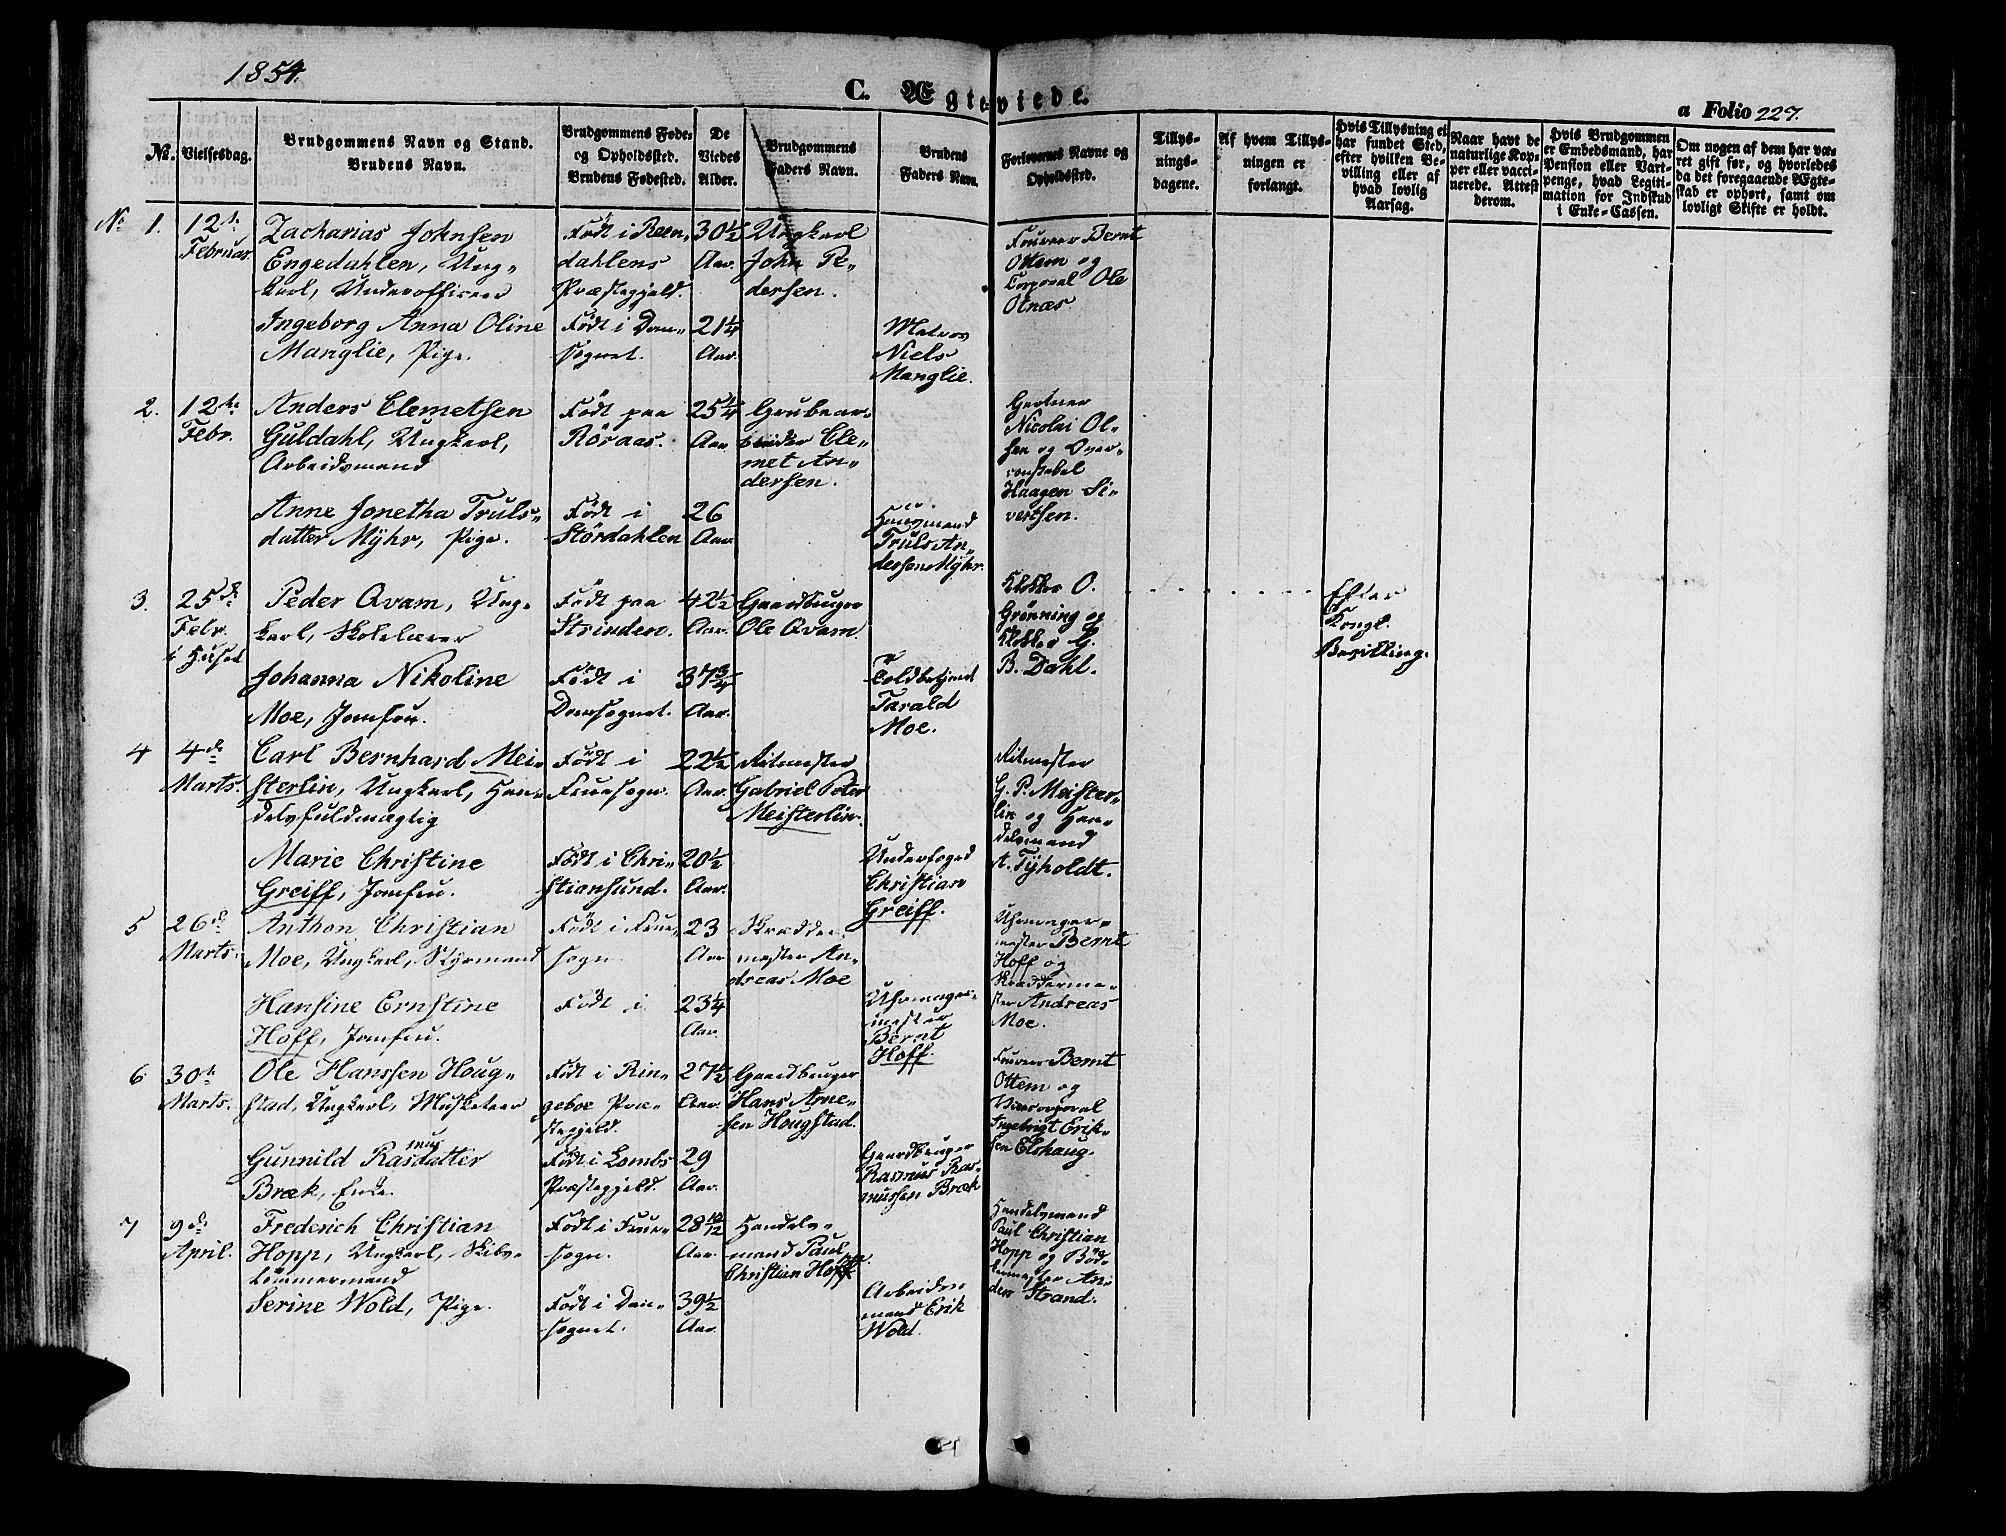 1854.
C. Ægteviede.
a Folio 227.
No.
Vielsesdag.
Brudgommens Navn og Stand.
Brudens Navn.
Brudgommens Føde-
og Opholdssted.
Brudens Fødested.
De
Viedes
Alder.
Brudgommens
Faders Navn.
Brudens
Faders Navn.
Forlovernes Navne og
Opholdssted.
Tillys-
nings-
dagene.
Af hvem Tillys-
ningen er
forlangt.
Hvis Tillysning ei
har fundet Sted,
efter hvilken Be-
villing eller af
hvad lovlig
Aarsag.
Naar havt de
naturlige Kop-
per eller vacci-
nerede. Attest
derom.
Hvis Brudgommen
er Embedsmand, har
Pension eller Vart-
penge, hvad Legiti-
mation for Indskud
i Enke-Cassen.
Om nogen af dem har væ-
ret gift før, og hvorledes
da det foregaaende Ægte-
skab er ophørt, samt om
lovligt Skifte er holdt.
No 1.
12te
Februar.
Zacharias Johnsen
Engedahlen, Ung-
karl, Underofficeer
Født i Reen-
dahlens
Præstegjeld.
30½
Aar.
Ungkarl
John Pe-
dersen.
Foureer Bernt
Ottem og
Corporal Ole
Otnæs
Ingeborg Anna Oline
Manglie, Pige.
Født i Dom-
sognet.
21¼
Aar.
Matros
Niels
Manglie.
2.
12te
Febr.
Anders Clemetsen
Guldahl, Ungkarl,
Arbeidsmand
Født paa
Röraas.
25¼
Aar
Grubear-
beider Cle-
met An-
dersen.
Gartner
Nicolai Ol-
sen og Over-
constabel
Haagen Si-
vertsen.
Anne Jonetha Truls-
datter Mÿhr, Pige.
Født i
Stördahlen
26
Aar.
Huusmand
Truls An-
dersen Mÿhr.
3.
25de
Febr.
i Huset
Peder Qvam, Ung-
karl, Skolelærer
Født paa
Strinden.
42½
Aar.
Gaardbruger
Ole Qvam.
Klokker O.
Grönning og
Klokker G.
B. Dahl.
Efter
Kongl.
Bevilling.
Johanna Nikoline
Moe, Jomfru.
Født i
Domsognet.
37¾
Aar.
Toldbetjent
Tarald
Moe.
4
4de
Marts.
Carl Bernhard Mei-
sterlin, Ungkarl, Han-
delsfuldmægtig
Født i
Fruesogn.
22½
Aar.
Ritmester
Gabriel Peter
Meisterlin.
Ritmester
G. P. Meister-
lin og Han-
delsmand
A. Tÿholdt.
Marie Christine
Greiff, Jomfru.
Født i Chri-
stiansund.
20½
Aar.
Underfoged
Christian
Greiff.
5
26de
Marts.
Anthon Christian
Moe, Ungkarl, Styrmand
Født i Frue-
sogn.
23
Aar
Skrædder-
mester An-
dreas Moe
Uhrmager-
mester Bernt
Hoff og
Skrædderme-
ster Andreas
Moe.
Hansine Ernstine
Hoff, Jomfru.
Født i
23¼
Aar.
Uhrmager-
mester
Bernt
Hoff.
6
30te
Marts.
Ole Hanssen Houg-
stad, Ungkarl, Musketeer
Født i Rin-
geboe Præ-
stegjeld.
27½
Aar.
Gaardbruger
Hans Arne-
sen Hougstad.
Foureer Bernt
Ottem og
Vicecorporal
Ingebrigt Erik-
sen Elshaug.
Gunnild Rasmusdatter
Bræk, Enke.
Født i Lombs
Præstegjeld.
29
Aar.
Gaardbruger
Rasmus Ras-
mussen Bræk
7
9de
April.
Frederich Christian
Hopp, Ungkarl, Skibs-
tömmermand
Født i Frue-
sogn.
28 10/12
Aar.
Handels-
mand Paul
Christian Hopp.
Handelsmand
Paul Christian
Hopp og Böd-
kermester An-
ders Strand.
Serine Wold, Pige.
Født i Dom-
sognet.
39½
Aar.
Arbeids-
mand Erik
Wold.